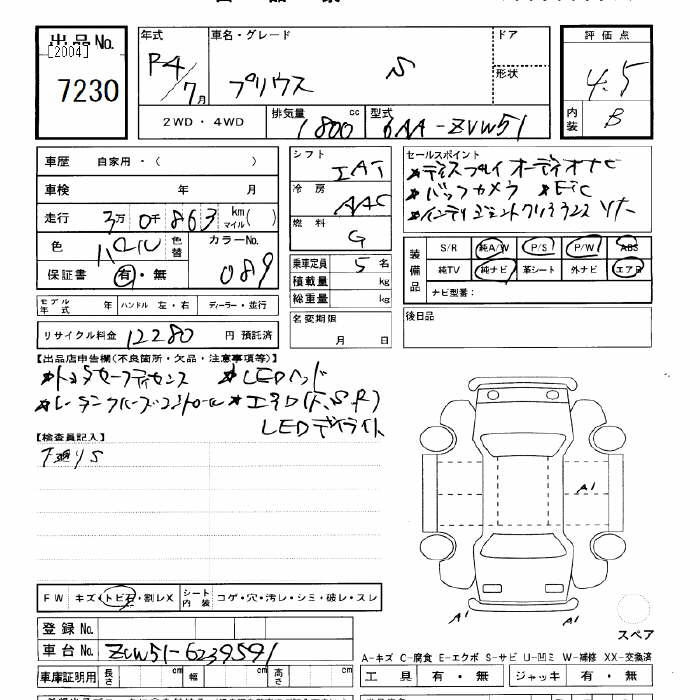 出品No.
[2004]
7230
年式
R4/7月
車名・グレード
プリウス S
ドア
形状
2WD・4WD
排気量 1800 cc
型式 6AA-ZVW51
評価点
4.5
内装 B
車歴 自家用・( )
車検 年 月
走行 3万0千863 km マイル( )
色 パール 色替
カラーNo. 089
保証書 有・無
シフト IAT
冷房 AAC
燃料 G
乗車定員 5 名
積載量 kg
総重量 kg
モデル年式 年 ハンドル 左・右 ディーラー・並行
名変期限 月 日
リサイクル料金 12280 円 預託済
セールスポイント
★ディスプレイオーディオナビ
★バックカメラ ★ETC
★インテリジェントクリアランスソナー
装備品
S/R 純A/W P/S P/W ABS
純TV 純ナビ 革シート 外ナビ エアB
ナビ型番:
後日品
【出品店申告欄(不良箇所・欠品・注意事項等)】
★トヨタセーフティセンス ★LEDヘッド
★レーダークルーズコントロール ★エアロ(F,S,R)
LEDデイライト
【検査員記入】
A1
A1
A1
FW キズ・トビ石・割レX
シート内装 コゲ・穴・汚レ・シミ・破レ・スレ
スペア
登録No.
車台No. ZVW51-6239591
A-キズ C-腐食 E-エクボ S-サビ U-凹ミ W-補修 XX-交換済
車庫証明用 長さ cm 幅 cm 高さ cm
工具 有・無 ジャッキ 有・無